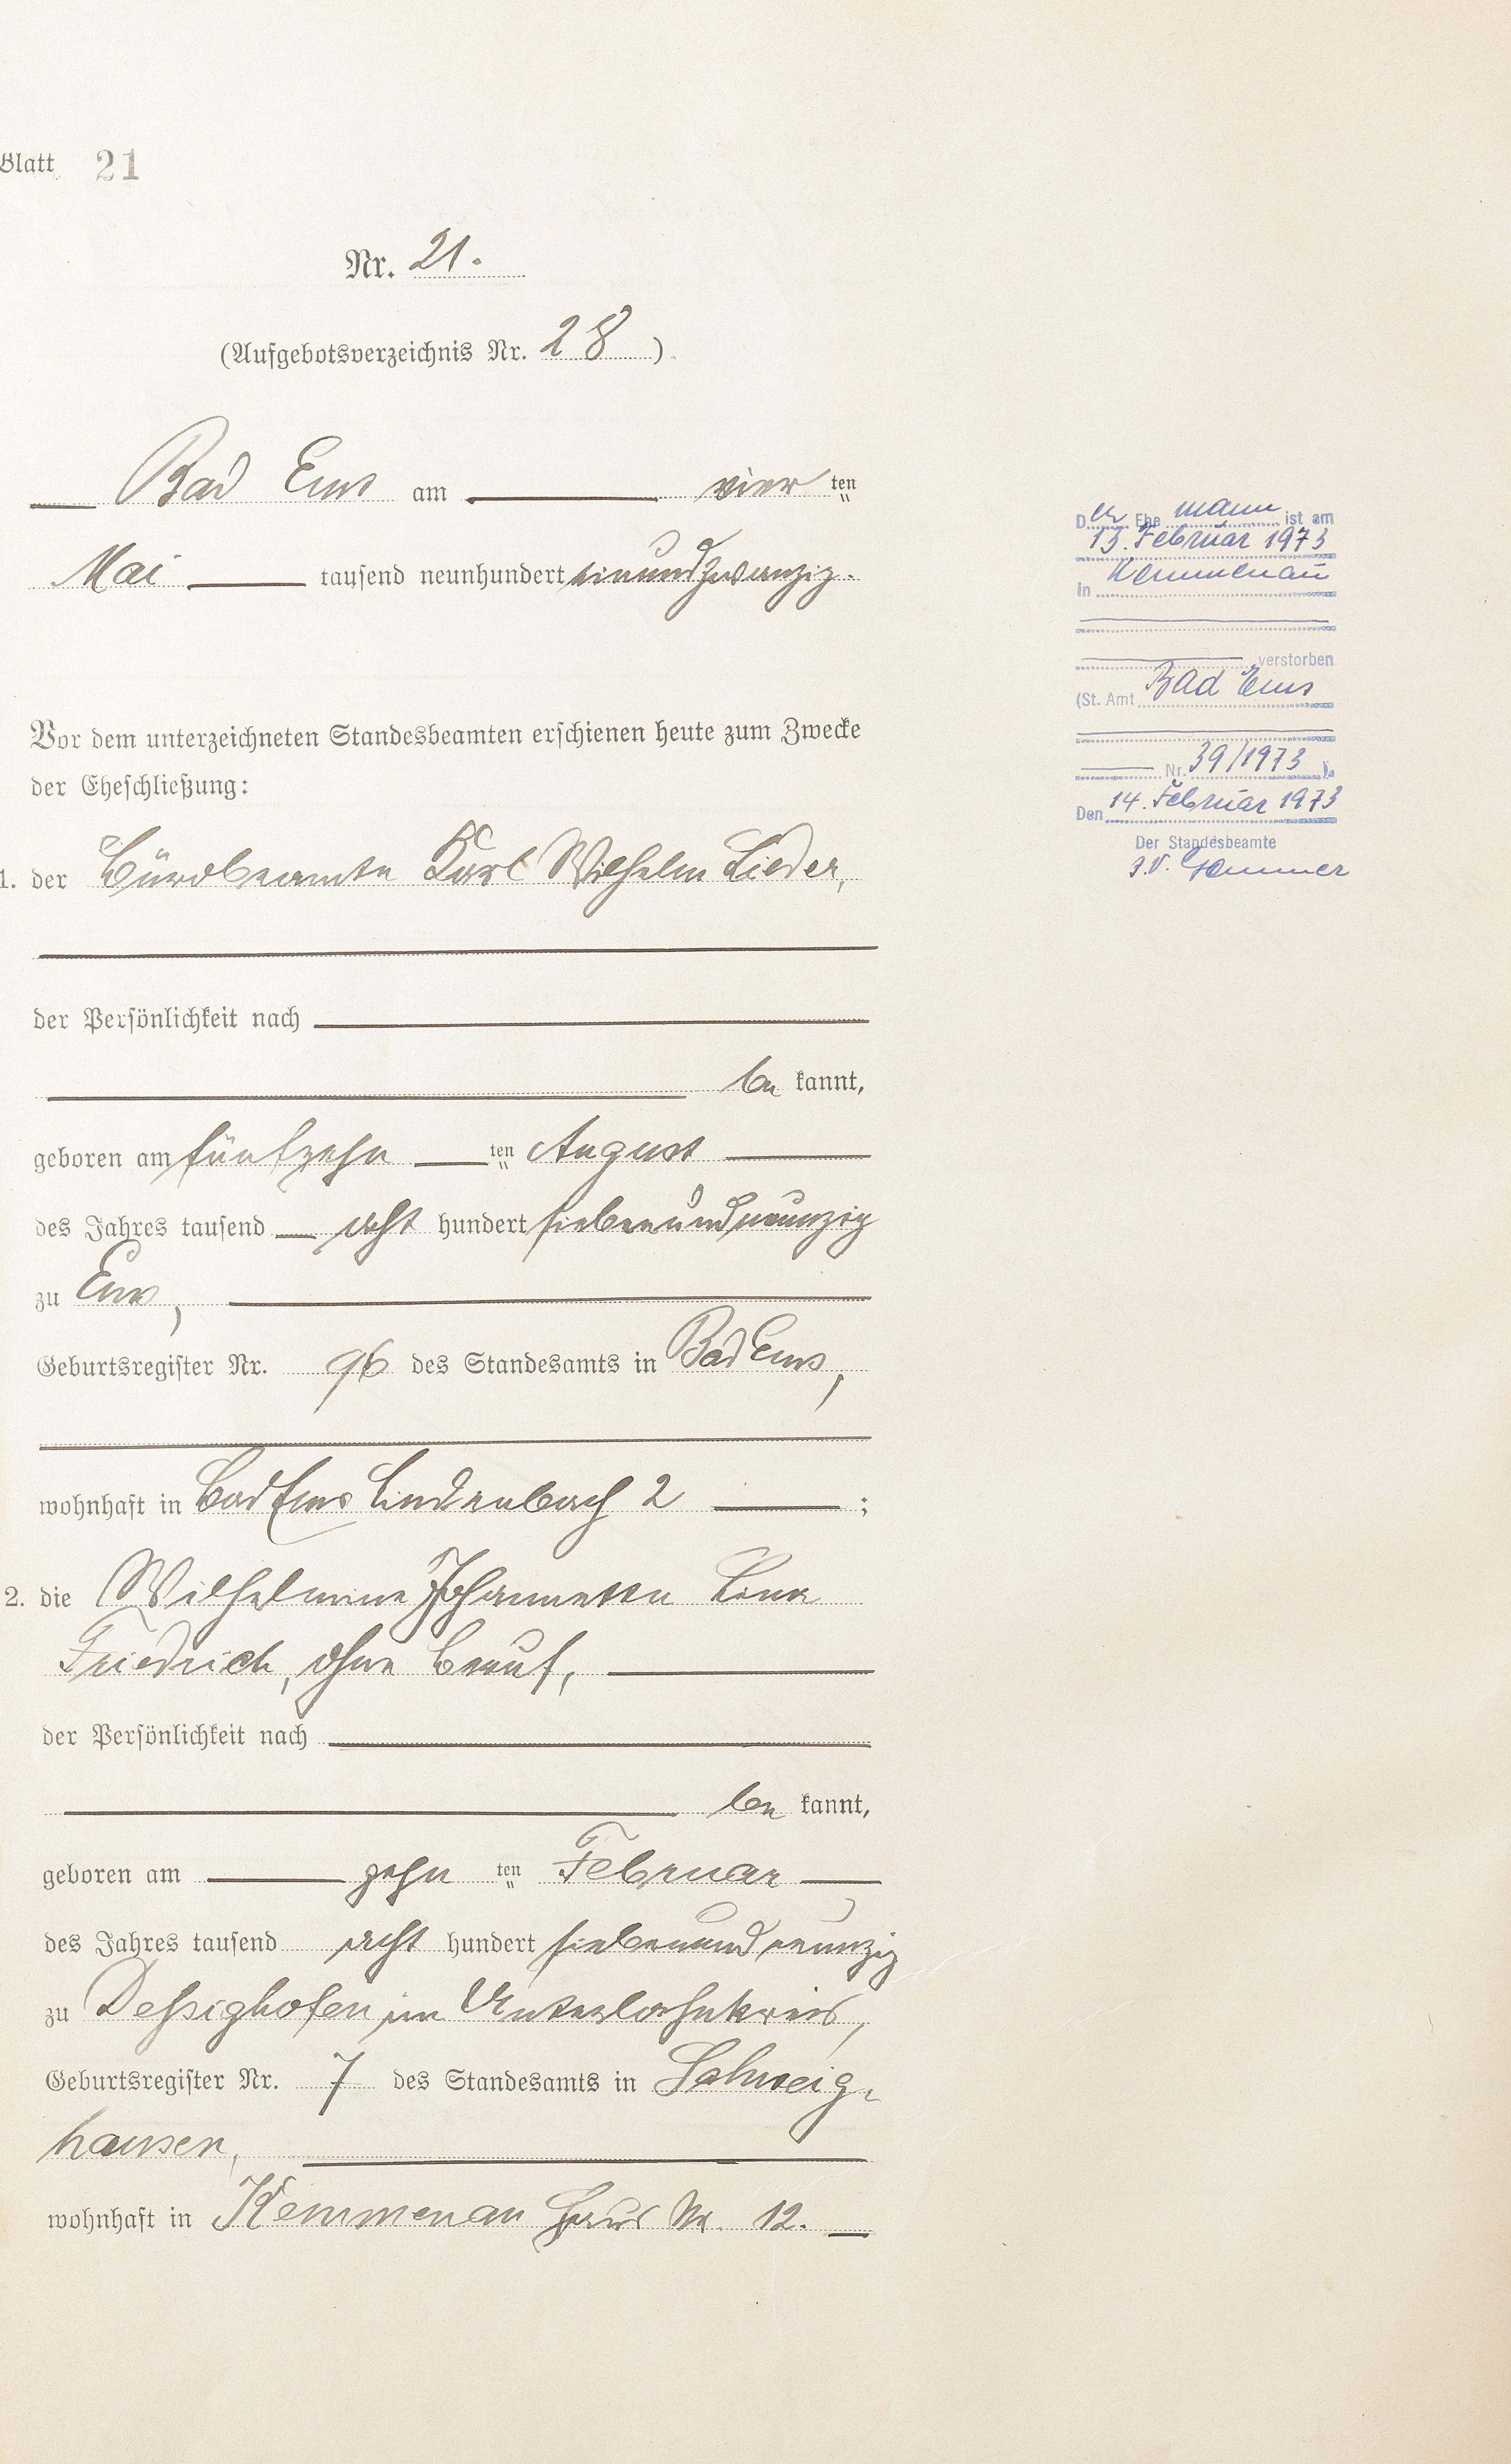 Blatt 21
Nr. 21.
(Aufgebotsverzeichnis Nr. 28)
Bad Ems am vier ten
Mai tausend neunhundert einundzwanzig.
Vor dem unterzeichneten Standesbeamten erschienen heute zum Zwecke
der Eheschließung:
1. der Bürobeamte Karl Wilhelm Lieder,
der Persönlichkeit nach
be kannt,
geboren am fünfzehn ten August
des Jahres tausend acht hundert siebenundneunzig
zu Ems,
Geburtsregister Nr. 96 des Standesamts in Bad Ems,
wohnhaft in Bad Ems Lindenbach 2 ;
2. die Wilhelmine Johannette Lina
Friedrich, ohne Beruf,
der Persönlichkeit nach
be kannt,
geboren am zehn ten Februar
des Jahres tausend acht hundert siebenundneunzig
zu Dessighofen im Unterlahnkreis,
Geburtsregister Nr. 7 des Standesamts in Schweig-
hausen,
wohnhaft in Kemmenau Haus Nr. 12.
Der Ehe mann ist am
13. Februar 1973
in Kemmenau
verstorben
(St. Amt Bad Ems
Nr. 39/1973 ).
Den 14. Februar 1973
Der Standesbeamte
J.V.